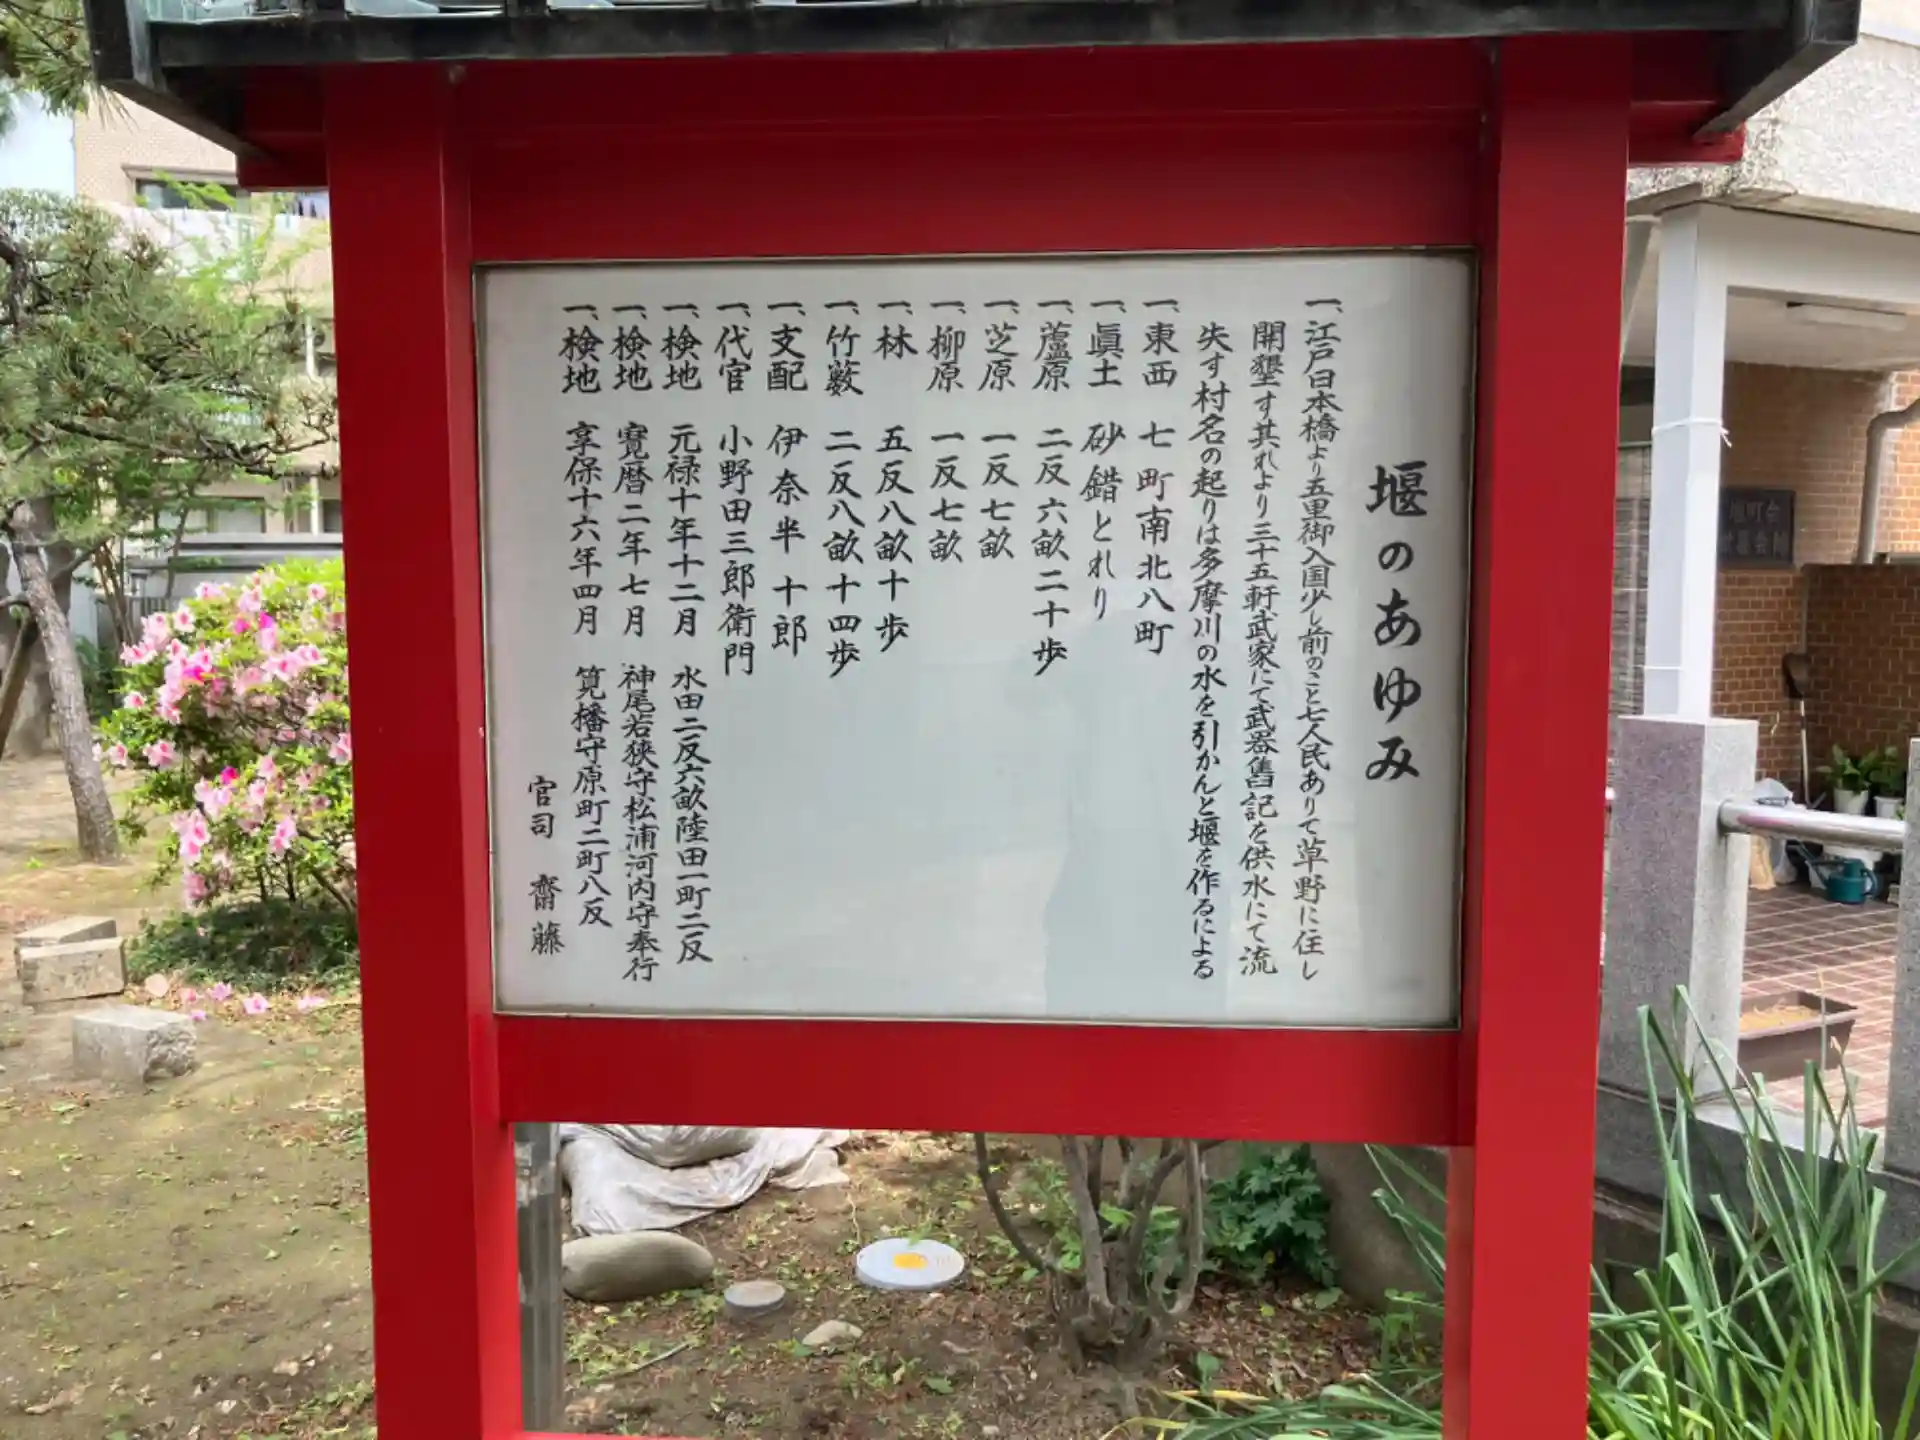 堰のあゆみ
一、江戸日本橋より五里御入国少し前のこと七人民ありて草野に住し
開墾す其れより三十五軒武家にて武器舊記を供水にて流
失す村名の起りは多摩川の水を引かんと堰を作るによる
一、東西 七町南北八町
一、眞土 砂錯とれり
一、蘆原 二反六畝二十歩
一、芝原 一反七畝
一、柳原 一反七畝
一、林 五反八畝十歩
一、竹藪 二反八畝十四歩
一、支配 伊奈半十郎
一、代官 小野田三郎衛門
一、検地 元禄十年十二月 水田二反六畝陸田一町二反
一、検地 寛暦二年七月 神尾若狭守松浦河内守奉行
一、検地 享保十六年四月 筧播守原町二町八反
官司 齋藤
堰町会